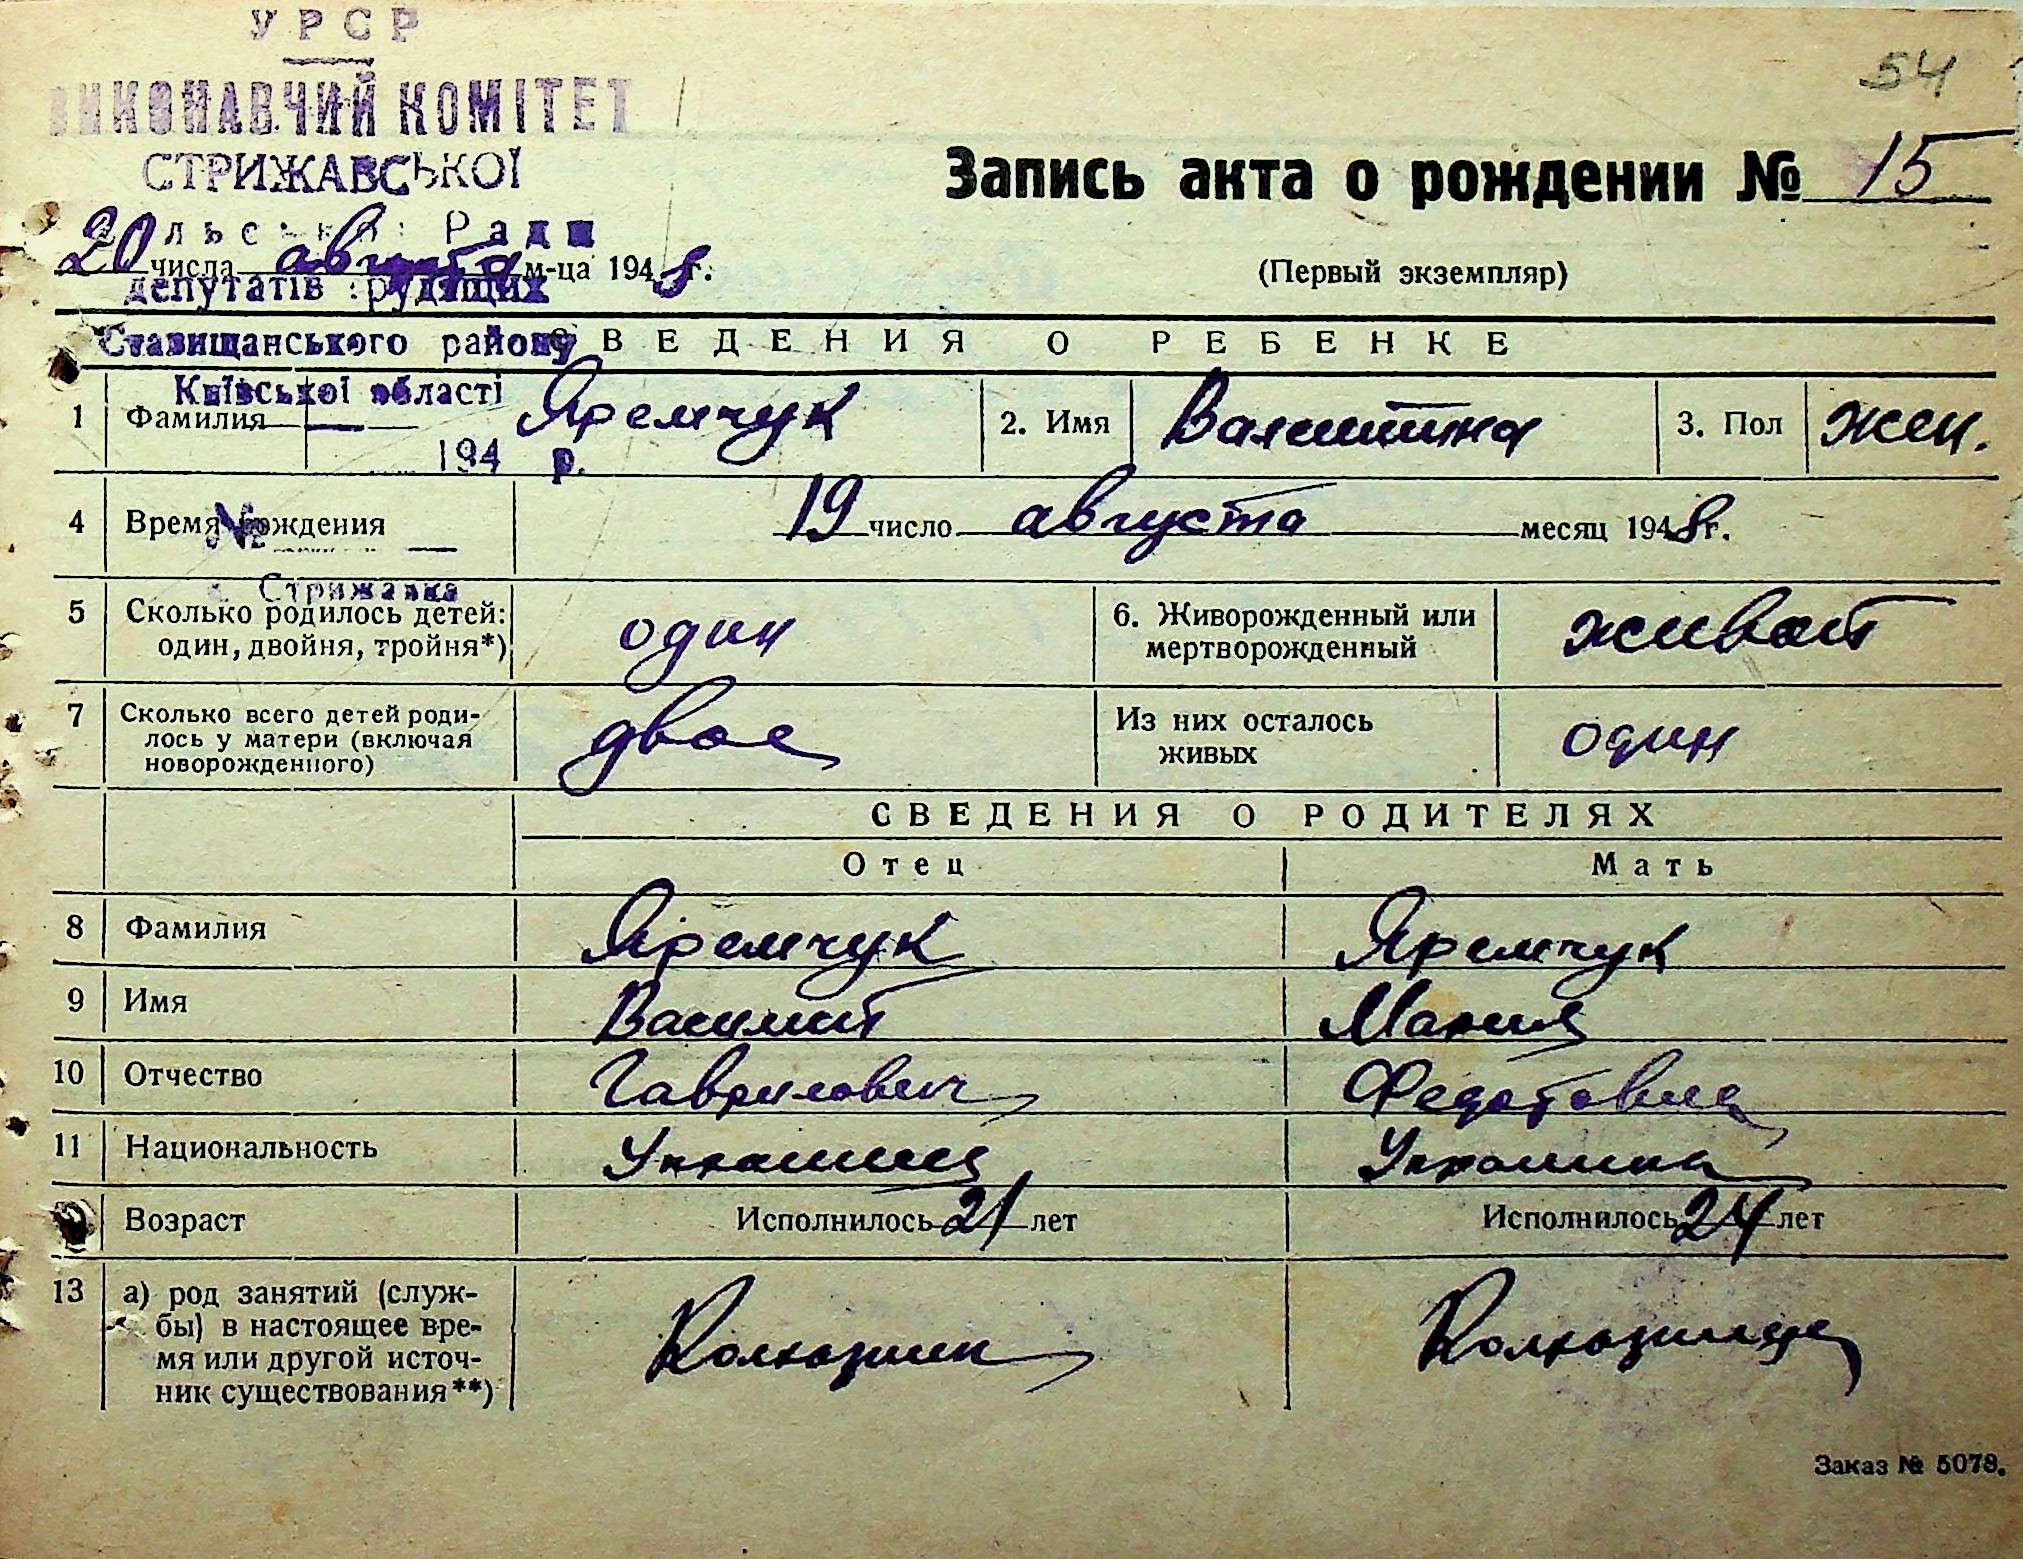 УРСР
ВИКОНАВЧИЙ КОМІТЕТ
СТРИЖАВСЬКОЇ
54
Запись акта о рождении № 15
льської Ради
20 числа августа м-ца 1948 г.
(Первый экземпляр)
депутатів трудящих
Ставищанського району
СВЕДЕНИЯ О РЕБЕНКЕ
Київської області
1 Фамилия Яремчук 2. Имя Валентина 3. Пол жен.
194 р.
4 Время рождения 19 число августа месяц 1948 г.
№
с. Стрижавка
5 Сколько родилось детей: один, двойня, тройня*) один 6. Живорожденный или мертворожденный живой
7 Сколько всего детей родилось у матери (включая новорожденного) двое Из них осталось живых один
СВЕДЕНИЯ О РОДИТЕЛЯХ
Отец Мать
8 Фамилия Яремчук Яремчук
9 Имя Василий Мария
10 Отчество Гаврилович Федотовна
11 Национальность Украинец Украинка
Возраст Исполнилось 21 лет Исполнилось 24 лет
13 а) род занятий (службы) в настоящее время или другой источник существования**) Колхозник Колхозница
Заказ № 5078.